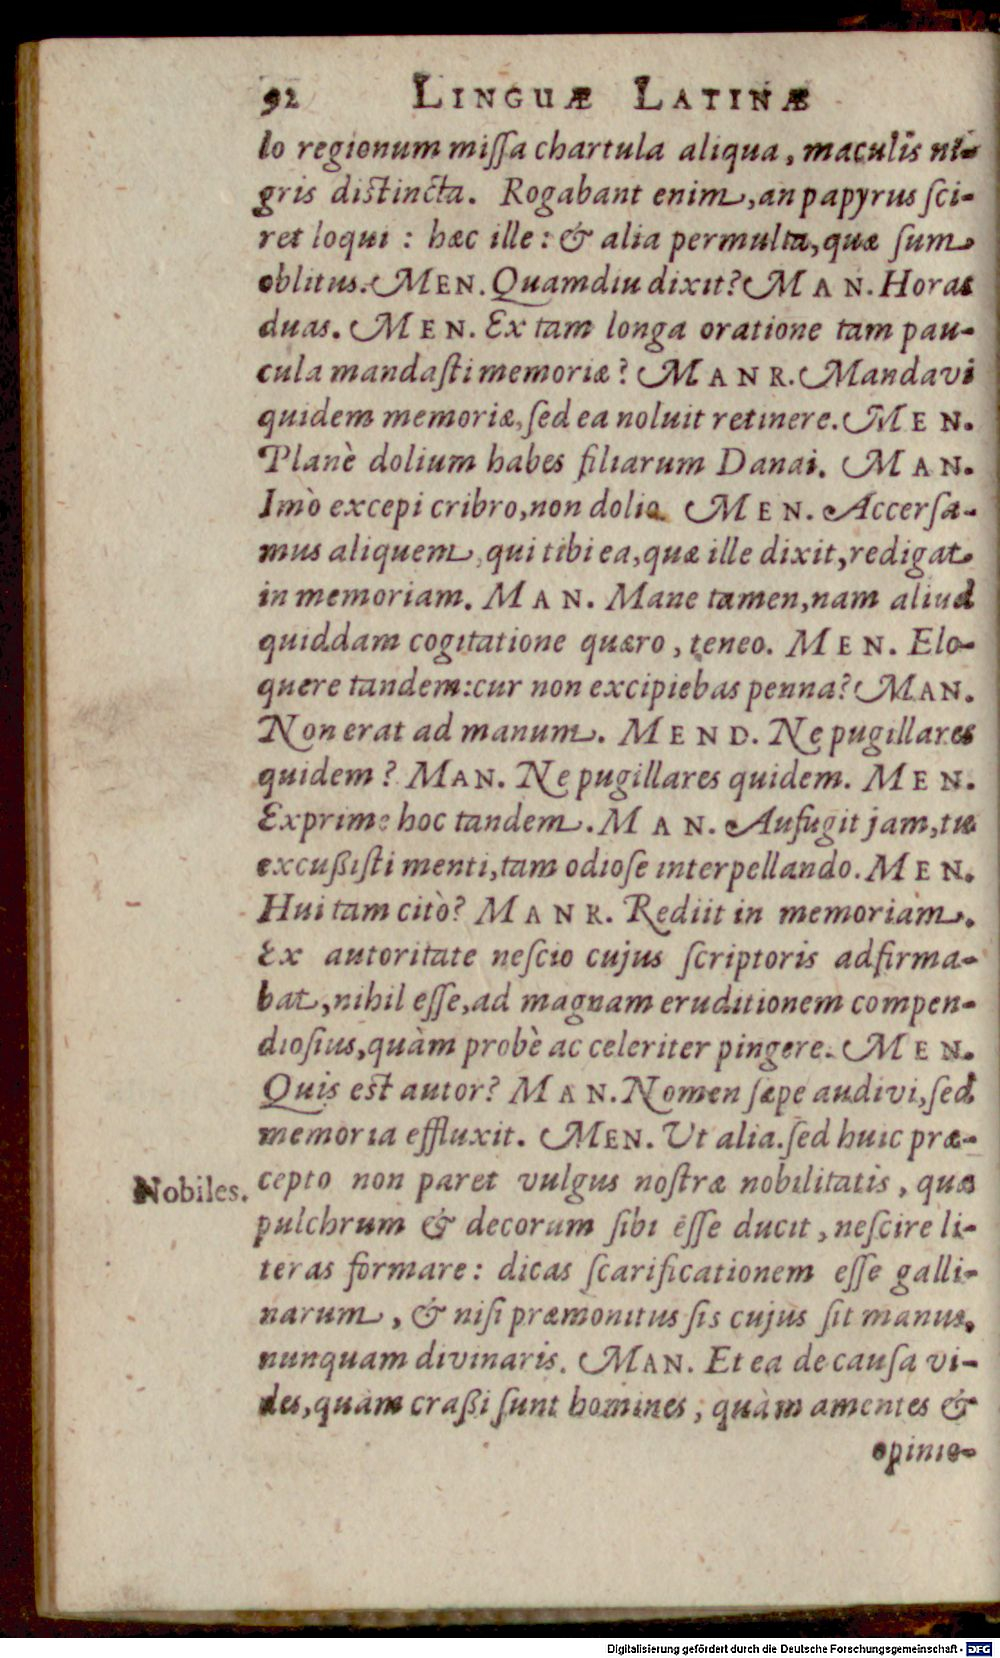 92 LINGUÆ LATINÆ
lo regionum miſſa chartula aliqua, maculis ni-
gris distincta. Rogabant enim, an papyrus ſci-
ret loqui : hæc ille: & alia permulta, quæ ſum
oblitus. MEN. Quamdiu dixit? MAN. Horas
duas. MEN. Ex tam longa oratione tam pau-
cula mandaſti memoriæ? MANR. Mandavi
quidem memoriæ, ſed ea noluit retinere. MEN.
Planè dolium habes filiarum Danai. MAN.
Imò excepi cribro, non dolio. MEN. Accerſa-
mus aliquem, qui tibi ea, quæ ille dixit, redigat
in memoriam. MAN. Mane tamen, nam aliud
quiddam cogitatione quæro, teneo. MEN. Elo-
quere tandem: cur non excipiebas penna? MAN.
Non erat ad manum. MEND. Ne pugillares
quidem? MAN. Ne pugillares quidem. MEN.
Exprime hoc tandem. MAN. Aufugit jam, tu
excußiſti menti, tam odioſe interpellando. MEN.
Hui tam citò? MANR. Rediit in memoriam.
Ex autoritate neſcio cujus ſcriptoris adfirma-
bat, nihil eſſe, ad magnam eruditionem compen-
dioſius, quàm probè ac celeriter pingere. MEN.
Quis est autor? MAN. Nomen ſæpe audivi, ſed
memoria effluxit. MEN. Ut alia. ſed huic præ-
Nobiles. cepto non paret vulgus noſtræ nobilitatis, quæ
pulchrum & decorum ſibi eſſe ducit, neſcire li-
teras formare: dicas ſcarificationem eſſe galli-
narum, & niſi præmonitus ſis cujus ſit manus,
nunquam divinaris. MAN. Et ea de cauſa vi-
des, quàm craßi ſunt homines, quàm amentes &
opinio-
Digitalisierung gefördert durch die Deutsche Forschungsgemeinschaft - DFG